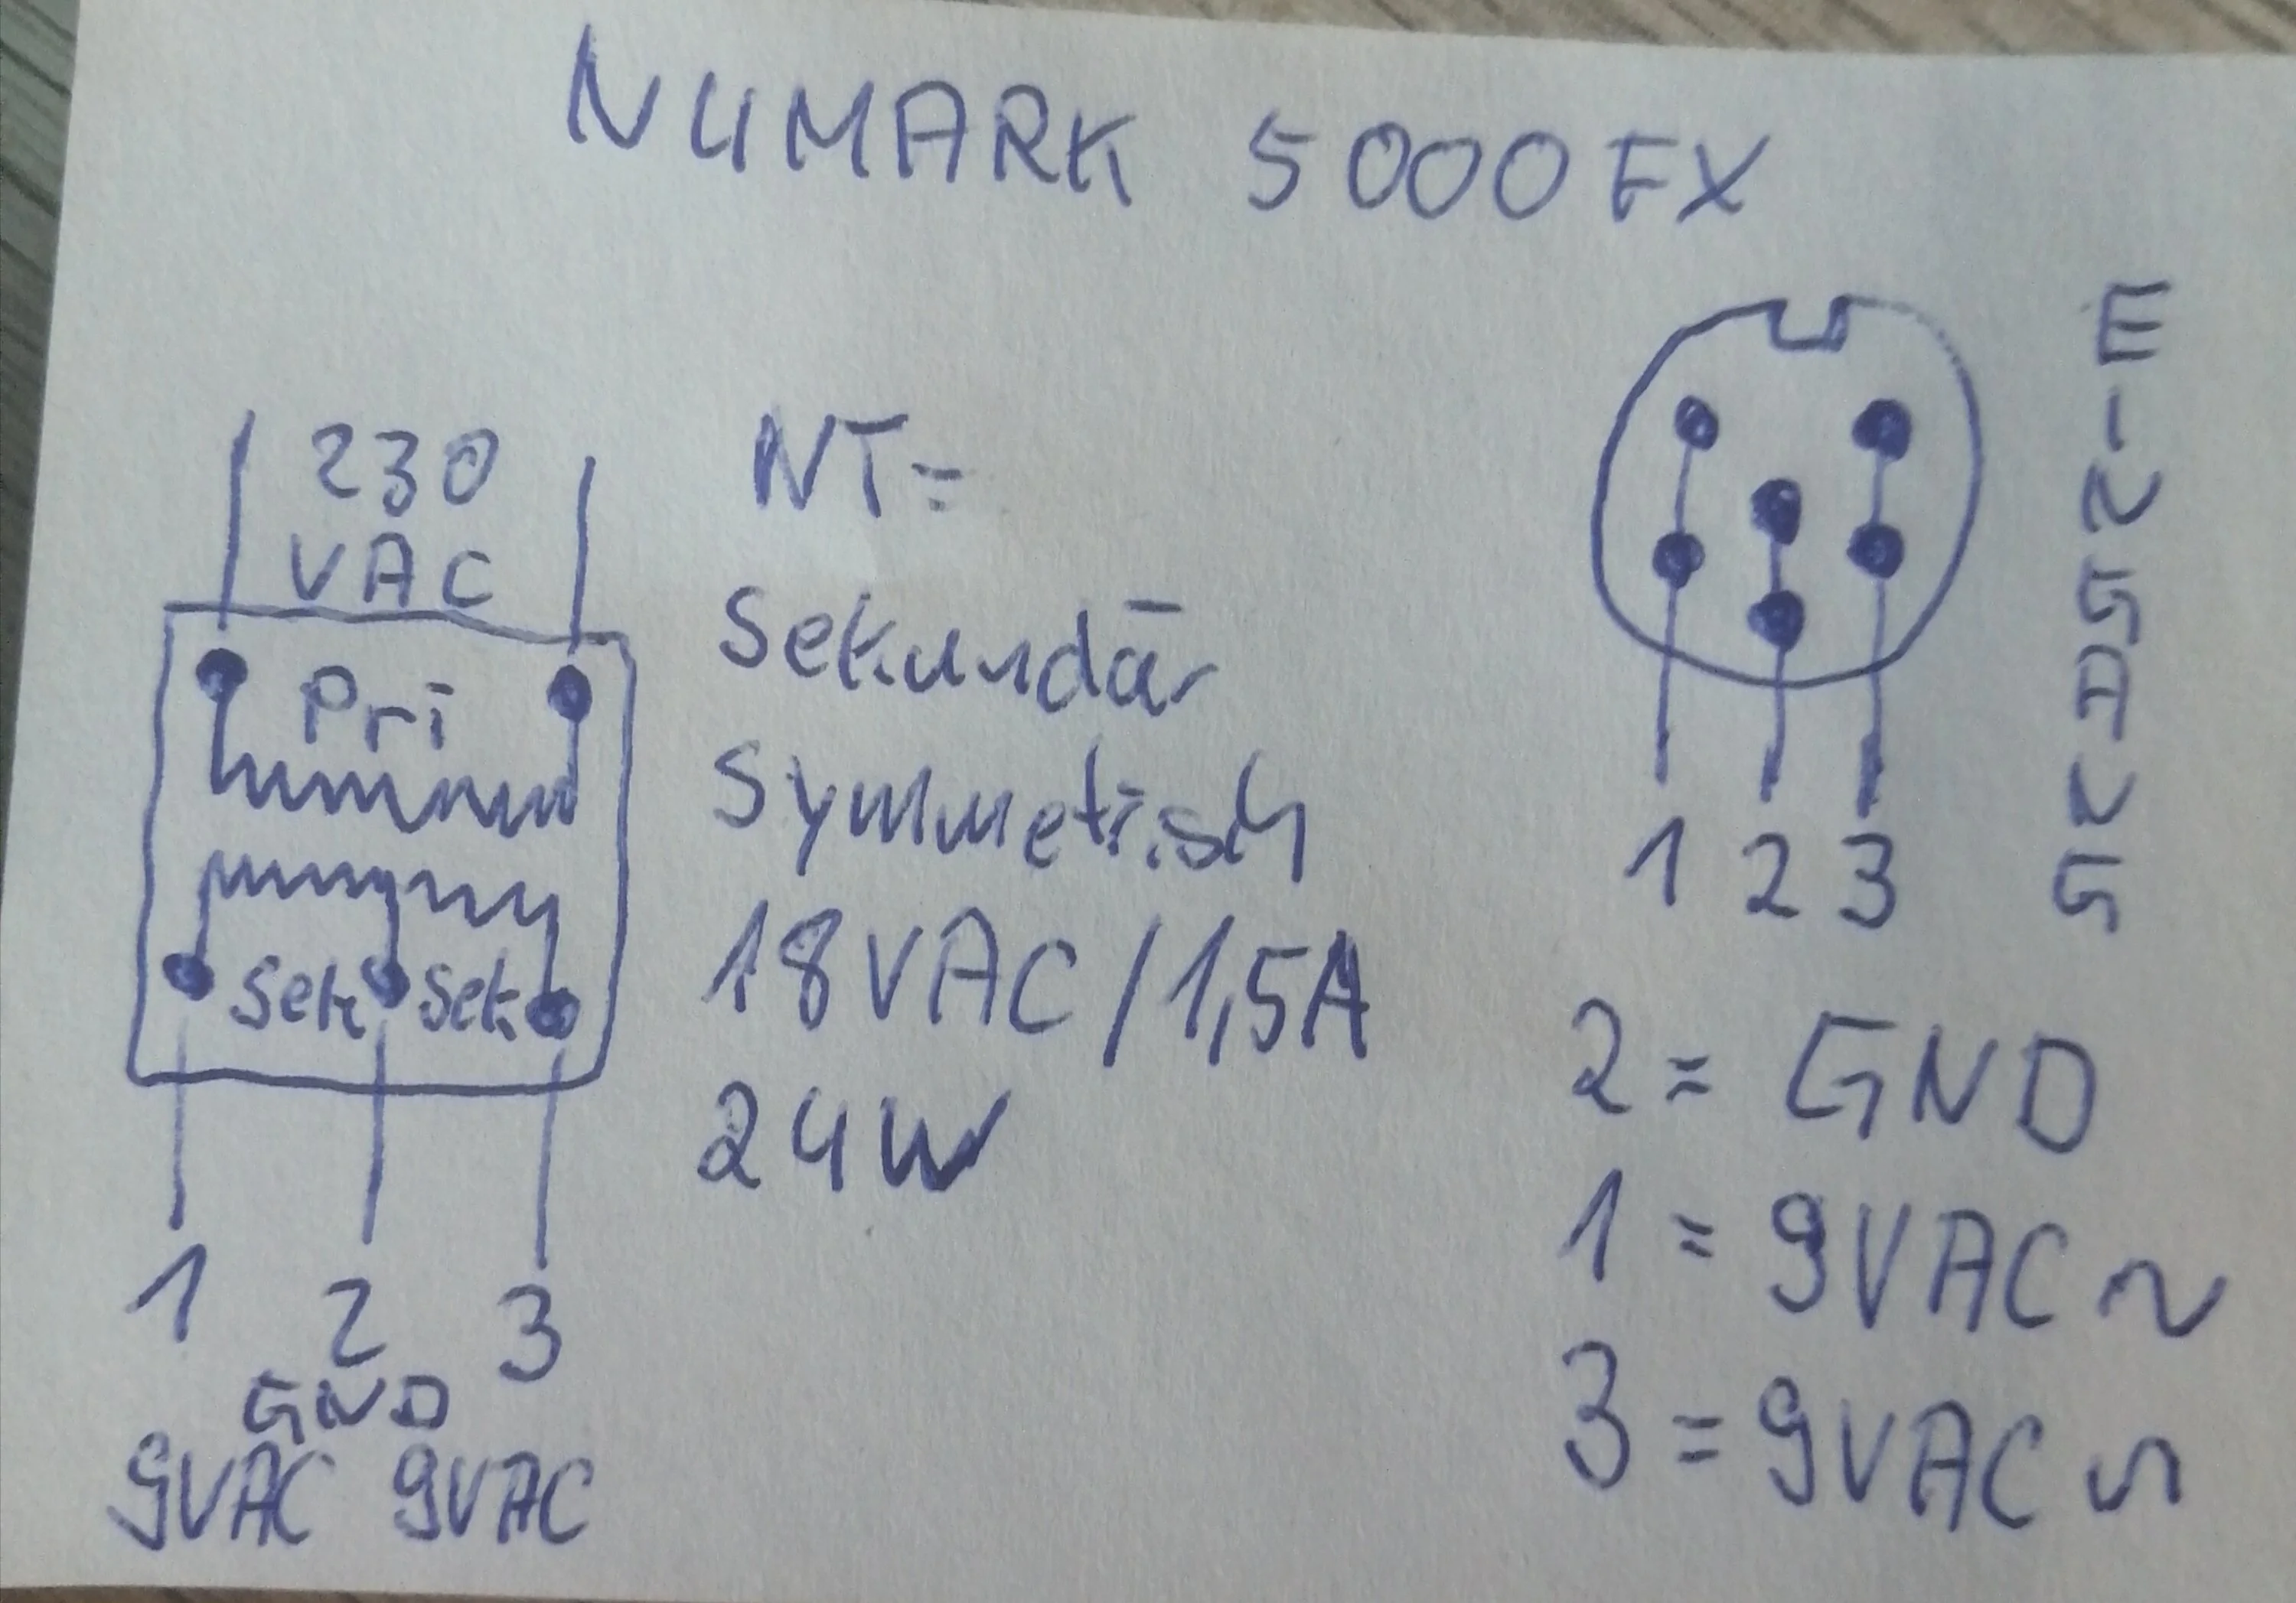 NUMARK 5000FX
230
VAC
Pri
Sek Sek
1 2 3
GND
9VAC 9VAC
NT=
Sekundär
Symmetrisch
18VAC/1,5A
24W
1 2 3
EINGANG
2 = GND
1 = 9VAC ~
3 = 9VAC ~